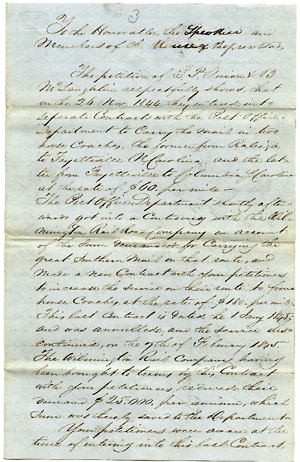 3
To the Honorable the Speaker and
Members of the House of Representatives
The petition of P Guion & B
McLaughlin respectfully shows, that
on the 24 Nov. 1844 they entered into
Seperate Contracts with the Post Office
Department to Carry the mail in two
horse Coaches, the former from Raleigh
to Fayetteville N Carolina, and the lat-
ter from Fayetteville to Columbia S Carolina
at the rate of $60 per mile
The Post Office Department shortly after-
wards got into a Controversy with the Wil-
mington Rail Road Company on account
of the sum demanded for Carrying the
great Southern Mail on that route, and
made a new Contract with your petitioners
to increase the service on their route to four
horse Coaches, at the rate of $180. per mile
This last Contract is dated the 1 Jany 1845
and was annulled and the service dis-
continued, on the 9th of February 1845
The Wilmington Rail Company, having
been brought to terms by the Contract
with your petitioners reduced their
demand $25.000, per annum, which
sum was thereby saved to the Department
Your petitioners were aware at the
time of entering into this last Contract,